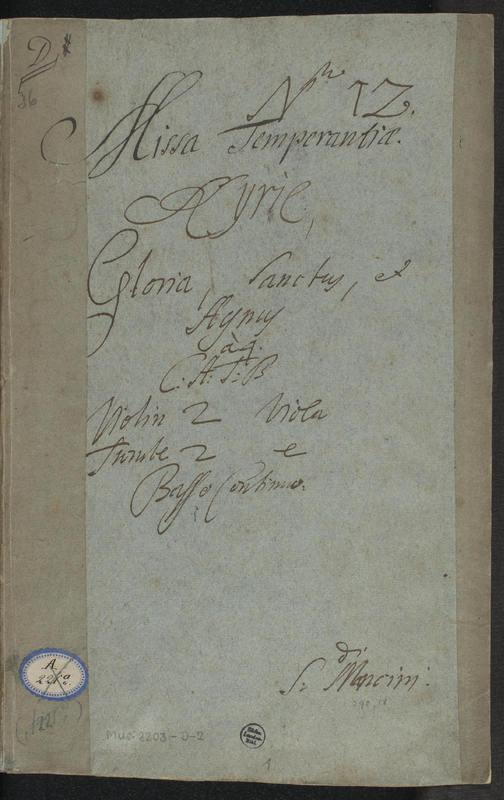 D.
36
Nro 12.
Missa Temperantiæ.
Kyrie,
Gloria, Sanctus, et
Agnus
à 4.
C: A: T: B
Violin 2 Viola
Trombe 2 e
Basso Continuo.
di
S: Mancini.
A
Mus. 2203-D-2
1